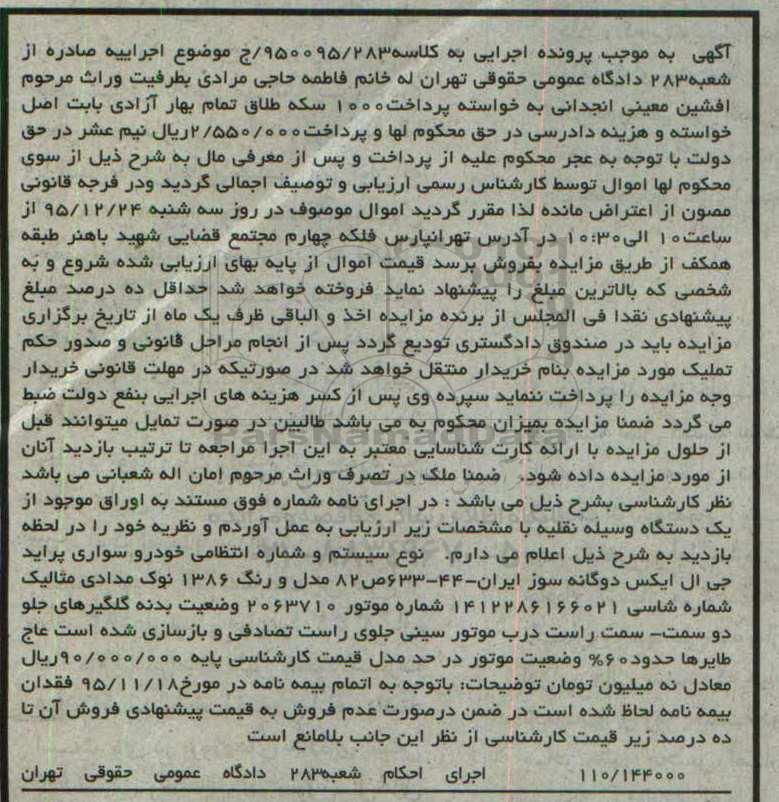 آگهی به موجب پرونده اجرایی به کلاسه۹۵۰۰۹۵/۲۸۳/ج موضوع اجراییه صادره از
شعبه۲۸۳ دادگاه عمومی حقوقی تهران له خانم فاطمه حاجی مرادی بطرفیت وراث مرحوم
افشین معینی انجدانی به خواسته پرداخت۱۰۰۰ سکه طلاق تمام بهار آزادی بابت اصل
خواسته و هزینه دادرسی در حق محکوم لها و پرداخت۲/۵۵۰/۰۰۰ریال نیم عشر در حق
دولت با توجه به عجر محکوم علیه از پرداخت و پس از معرفی مال به شرح ذیل از سوی
محکوم لها اموال توسط کارشناس رسمی ارزیابی و توصیف اجمالی گردید ودر فرجه قانونی
مصون از اعتراض مانده لذا مقرر گردید اموال موصوف در روز سه شنبه ۹۵/۱۲/۲۴ از
ساعت۱۰ الی۱۰:۳۰ در آدرس تهرانپارس فلکه چهارم مجتمع قضایی شهید باهنر طبقه
همکف از طریق مزایده بفروش برسد قیمت اموال از پایه بهای ارزیابی شده شروع و به
شخصی که بالاترین مبلغ را پیشنهاد نماید فروخته خواهد شد حداقل ده درصد مبلغ
پیشنهادی نقدا فی المجلس از برنده مزایده اخذ و الباقی ظرف یک ماه از تاریخ برگزاری
مزایده باید در صندوق دادگستری تودیع گردد پس از انجام مراحل قانونی و صدور حکم
تملیک مورد مزایده بنام خریدار منتقل خواهد شد در صورتیکه در مهلت قانونی خریدار
وجه مزایده را پرداخت ننماید سپرده وی پس از کسر هزینه های اجرایی بنفع دولت ضبط
می گردد ضمنا مزایده بمیزان محکوم به می باشد طالبین در صورت تمایل میتوانند قبل
از حلول مزایده با ارائه کارت شناسایی معتبر به این اجرا مراجعه تا ترتیب بازدید آنان
از مورد مزایده داده شود. ضمنا ملک در تصرف وراث مرحوم امان اله شعبانی می باشد
نظر کارشناسی بشرح ذیل می باشد : در اجرای نامه شماره فوق مستند به اوراق موجود از
یک دستگاه وسیله نقلیه با مشخصات زیر ارزیابی به عمل آوردم و نظریه خود را در لحظه
بازدید به شرح ذیل اعلام می دارم. نوع سیستم و شماره انتظامی خودرو سواری پراید
جی ال ایکس دوگانه سوز ایران-۴۴-۶۳۳ص۸۲ مدل و رنگ ۱۳۸۶ نوک مدادی متالیک
شماره شاسی ۱۴۱۲۲۸۶۱۶۶۰۲۱ شماره موتور ۲۰۶۳۷۱۰ وضعیت بدنه گلگیرهای جلو
دو سمت- سمت راست درب موتور سینی جلوی راست تصادفی و بازسازی شده است عاج
طایرها حدود۶۰% وضعیت موتور در حد مدل قیمت کارشناسی پایه ۹۰/۰۰۰/۰۰۰ریال
معادل نه میلیون تومان توضیحات: باتوجه به اتمام بیمه نامه در مورخ۹۵/۱۱/۱۸ فقدان
بیمه نامه لحاظ شده است در ضمن درصورت عدم فروش به قیمت پیشنهادی فروش آن تا
ده درصد زیر قیمت کارشناسی از نظر این جانب بلامانع است
۱۱۰/۱۴۴۰۰۰ اجرای احکام شعبه۲۸۳ دادگاه عمومی حقوقی تهران